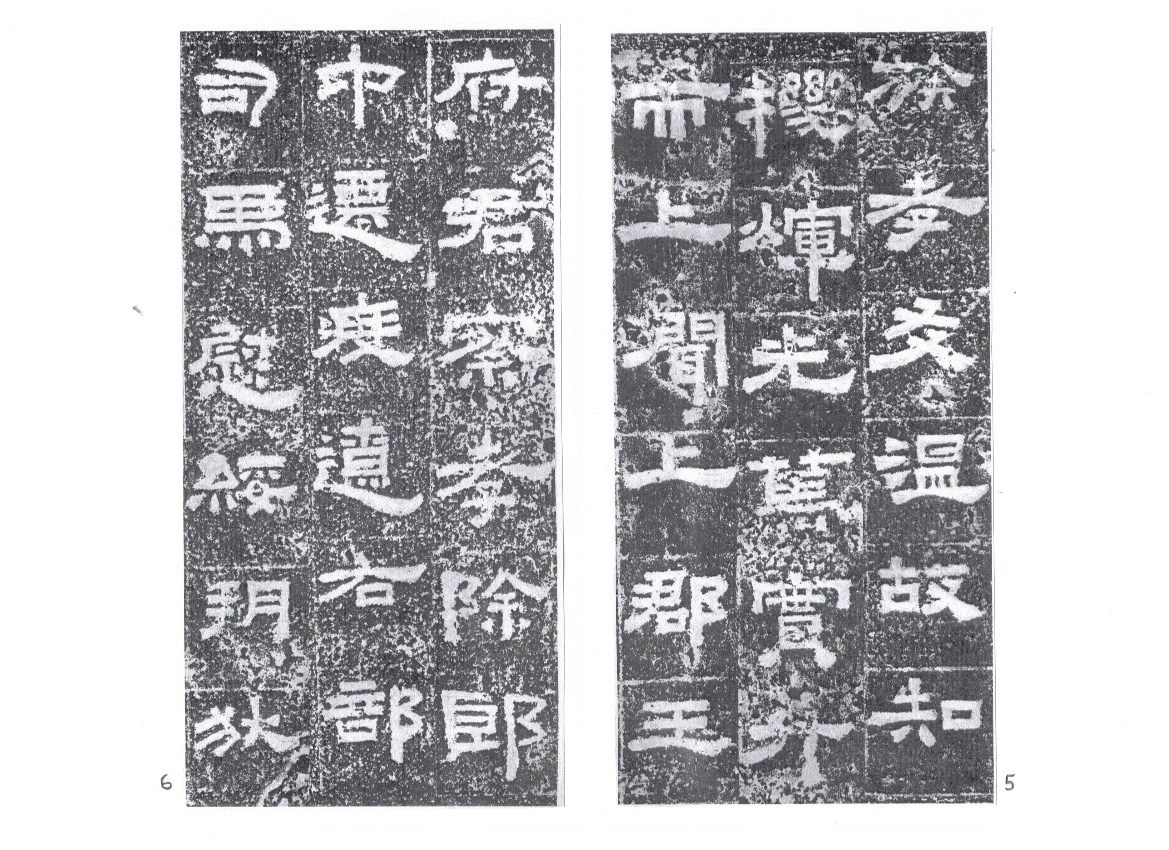 族孝友溫故知
機煇光篤實升
而上聞上郡王
5
府君察孝除郎
中遷度遼右部
司馬慰綏朔狄
6